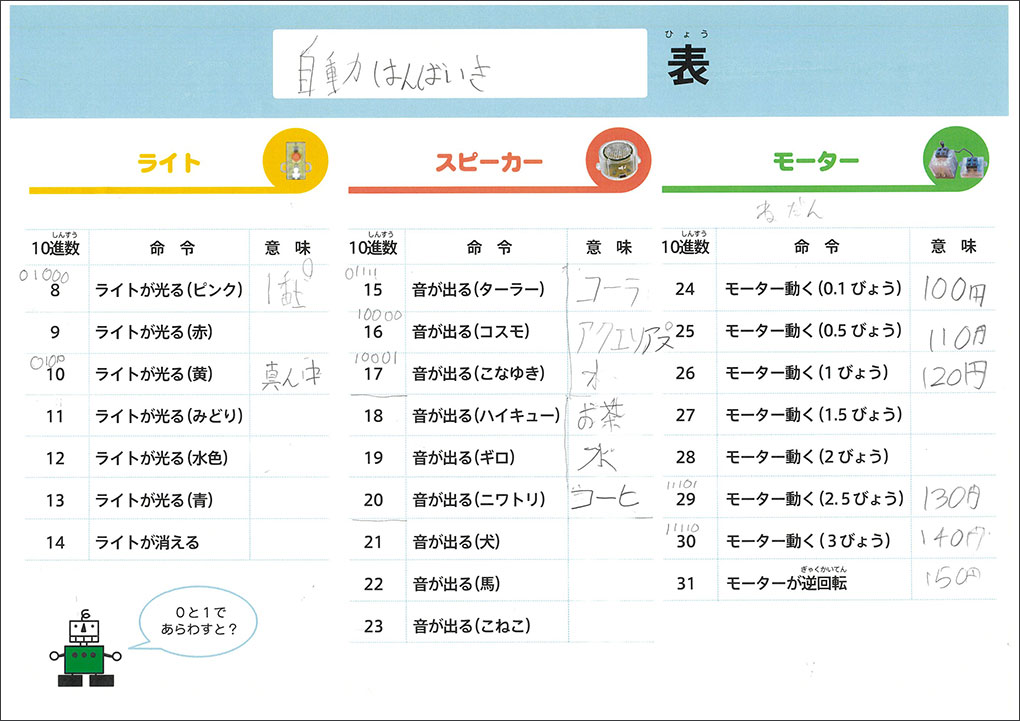 ひょう
自動力はんばいき 表
ライト
しんすう
10進数 命令 意味
01000
8 ライトが光る(ピンク) 1番
9 ライトが光る(赤)
10 ライトが光る(黄) 真ん中
11 ライトが光る(みどり)
12 ライトが光る(水色)
13 ライトが光る(青)
14 ライトが消える
0と1で
あらわすと?
スピーカー
しんすう
10進数 命令 意味
01111
15 音が出る(ターラー) コーラ
10000
16 音が出る(コスモ)
10001
17 音が出る(こなゆき)
18 音が出る(ハイキュー) お茶
19 音が出る(ギロ) 水
20 音が出る(ニワトリ) コーヒ
21 音が出る(犬)
22 音が出る(馬)
23 音が出る(こねこ)
モーター
ねだん
しんすう
10進数 命令 意味
24 モーター動く(0.1びょう) 100円
25 モーター動く(0.5びょう) 110円
26 モーター動く(1びょう) 120円
27 モーター動く(1.5びょう)
28 モーター動く(2びょう)
11101
29 モーター動く(2.5びょう) 130円
11110
30 モーター動く(3びょう) 140円
ぎゃくかいてん
31 モーターが逆回転 150円